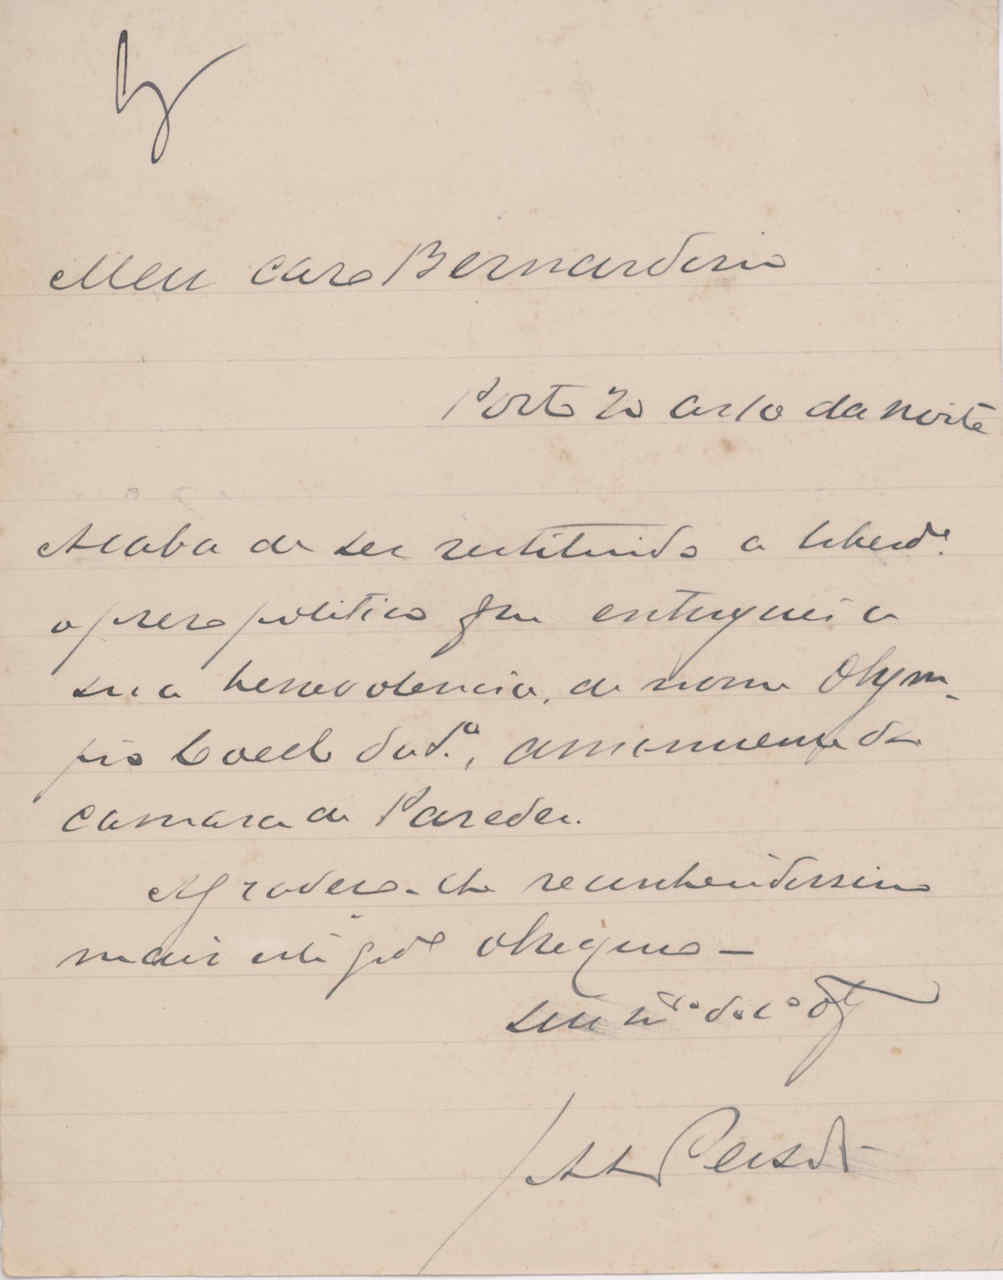 Meu caro Bernardino
Porto 20 da noite
Acaba de ser restituido a liberd.e
o preso politico que entreguei a
sua benevolencia, de nome Olym-
pio Coelho da d.a, amanuense da
camara de Paredes.
Agradeço-lhe reconhecidissimo
mais este gr.de obsequio —
Seu m.to